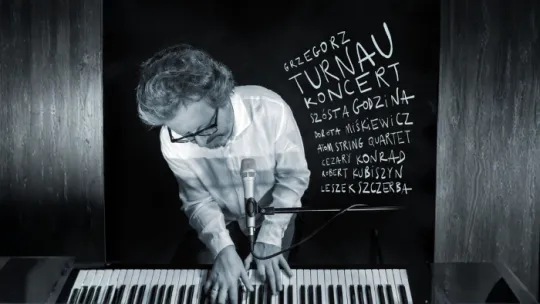 GRZEGORZ
TURNAU
KONCERT
SZÓSTA GODZINA
DOROTA MIŚKIEWICZ
ATOM STRING QUARTET
CEZARY KONRAD
ROBERT KUBISZYN
LESZEK SZCZERBA